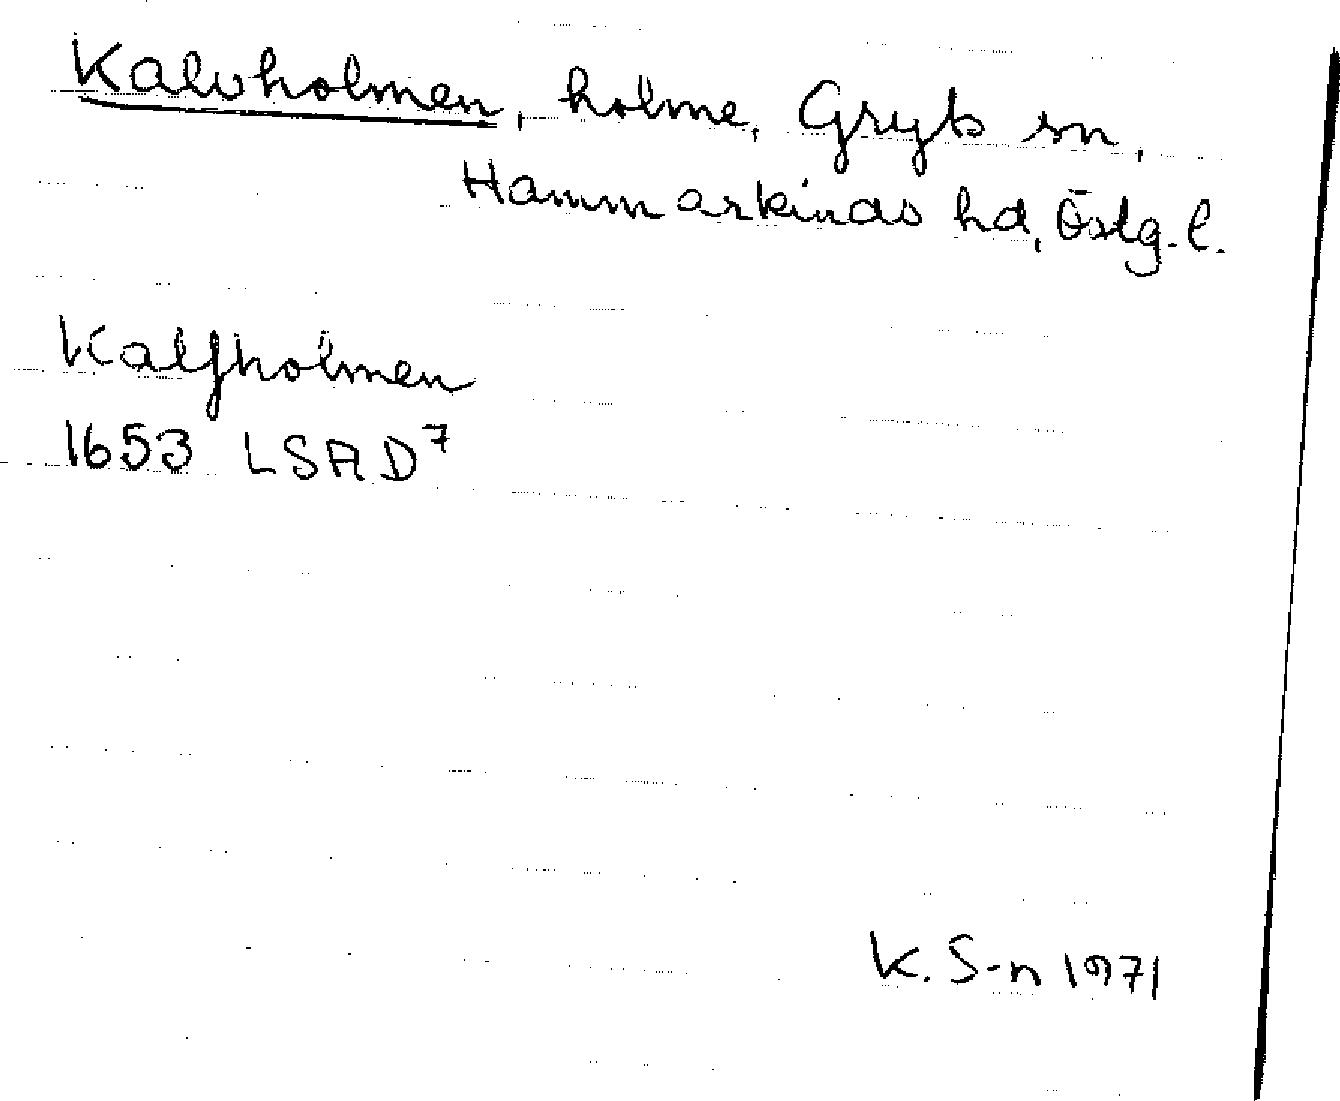 Kalvholmen, holme, Gryts sn,
Hammarkinds hd, Östg. l.
Kalfholmen
1653 LSA D⁷
K. S-n 1971